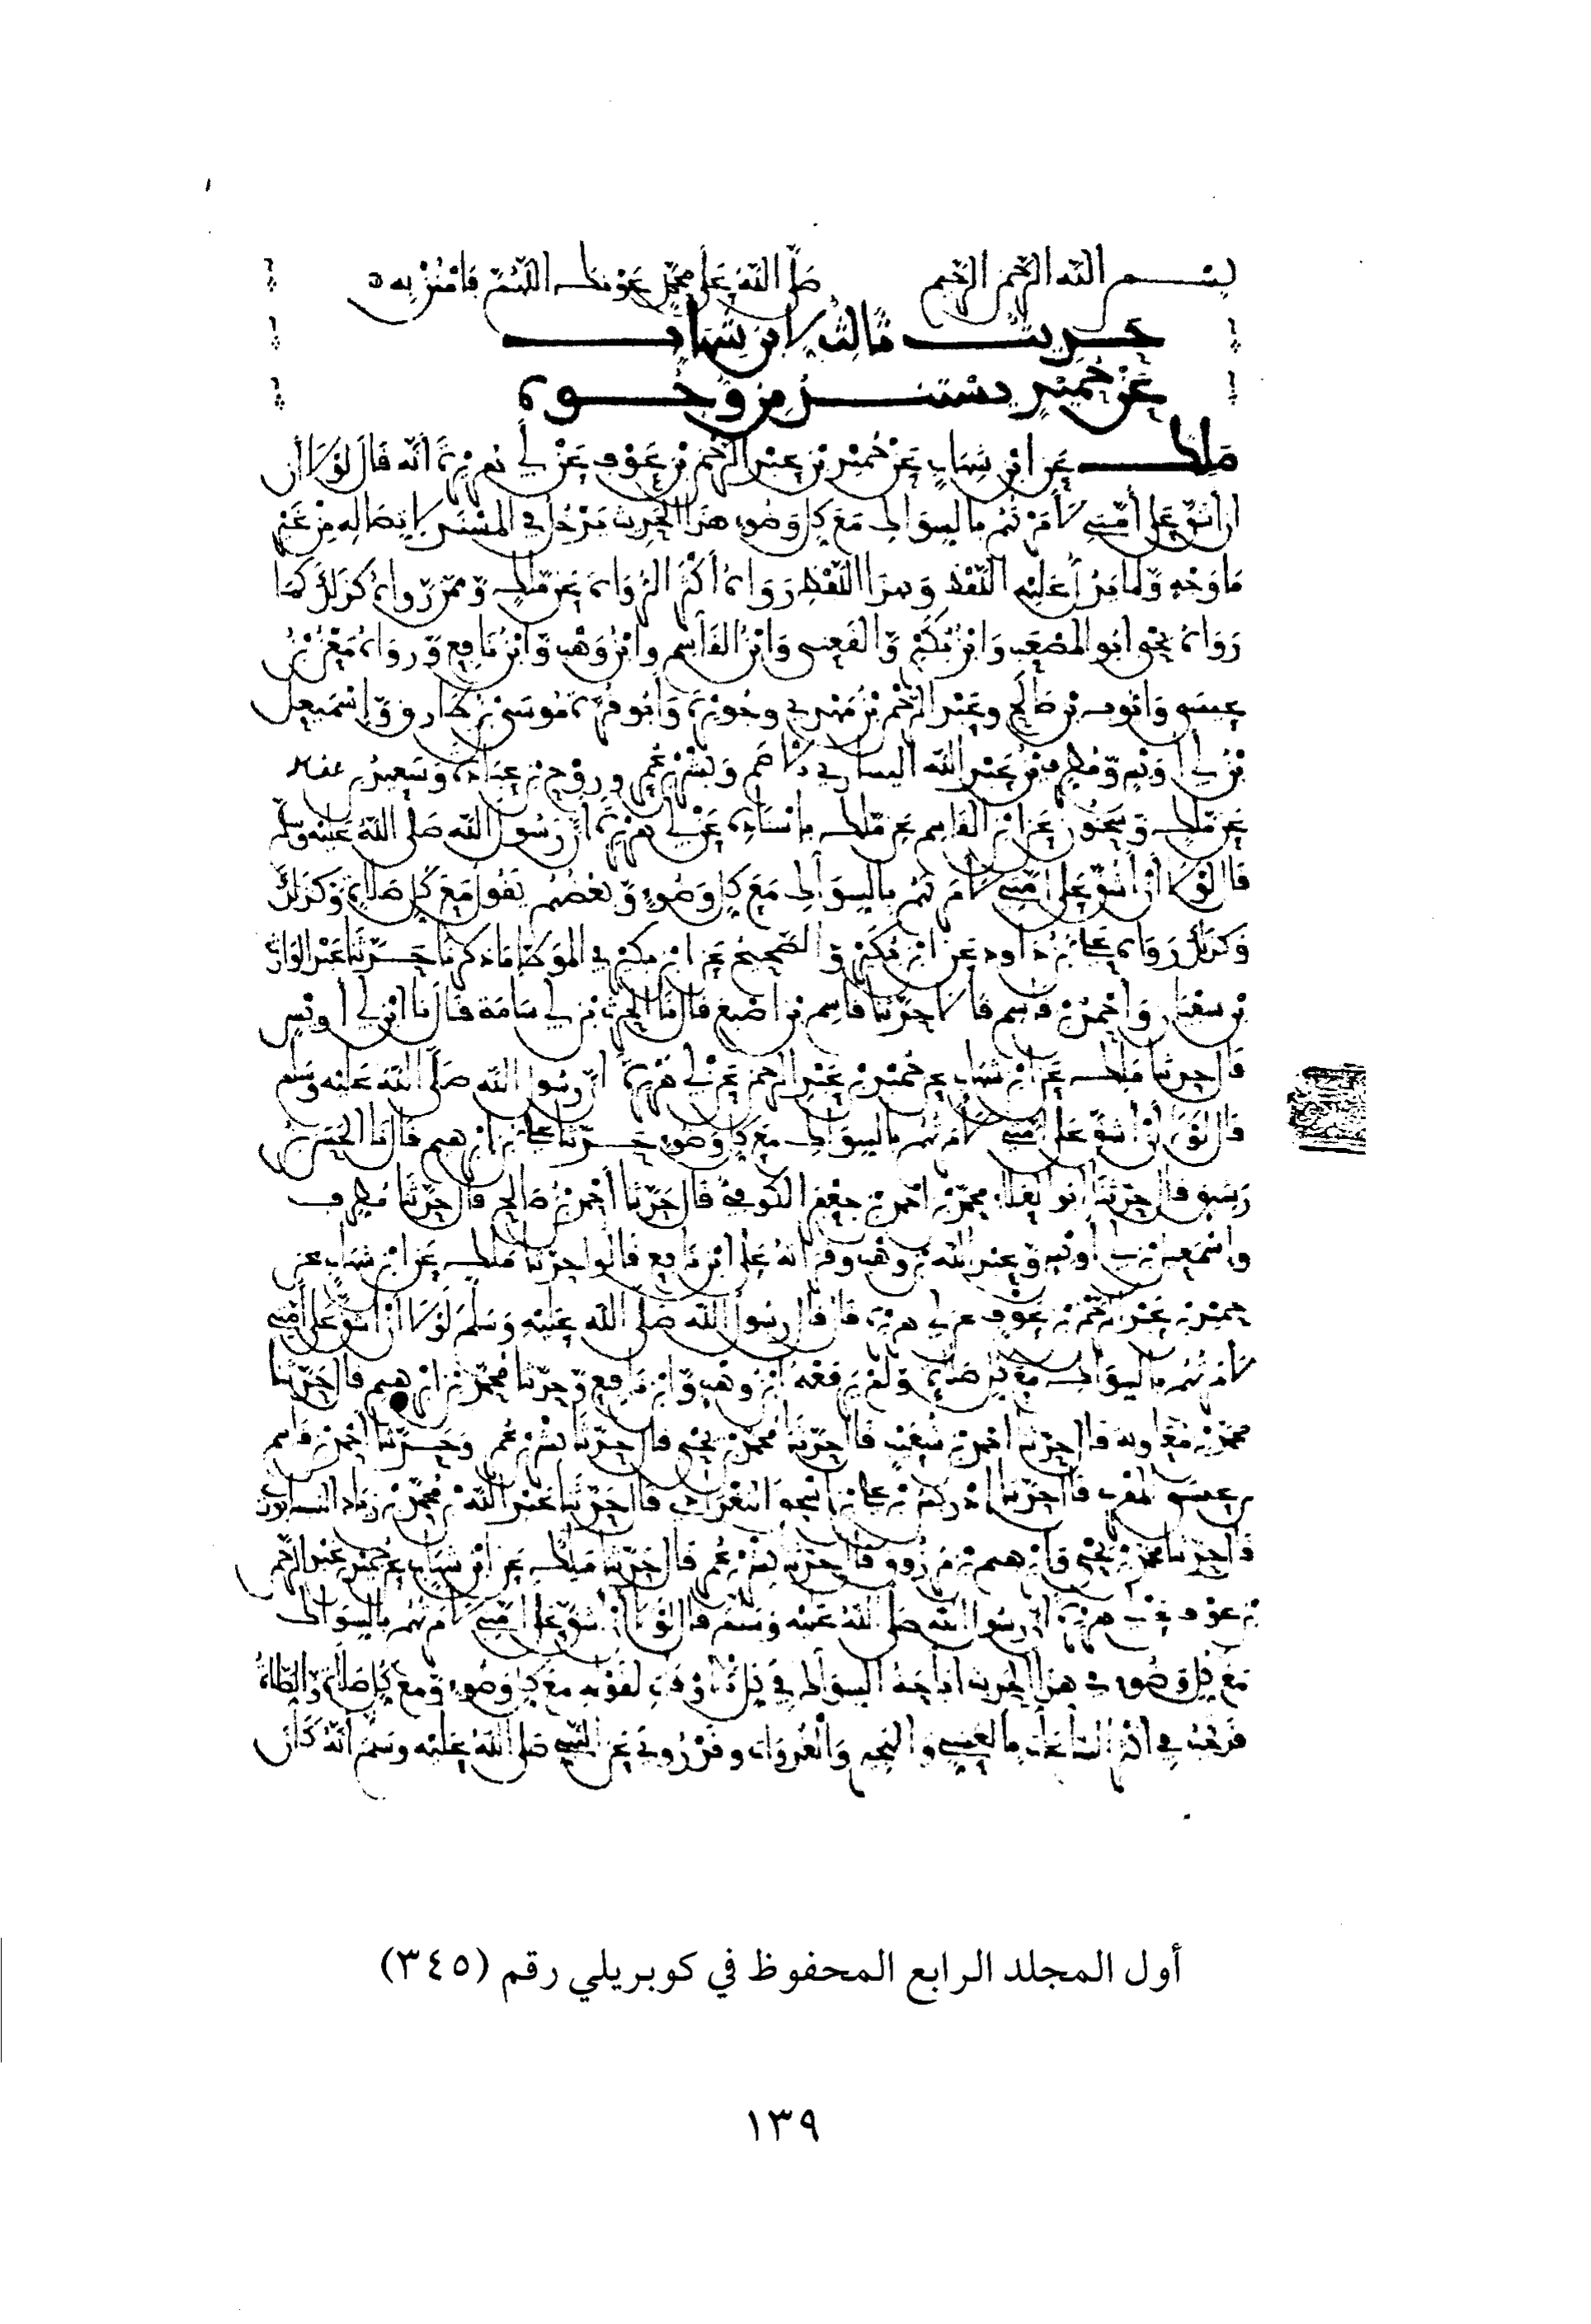 بسم الله الرحمن الرحيم صلى الله على محمد
حديث مالك لابن شهاب
عن حميد يستند من وجوه
ملك عن ابن شهاب عن حميد بن عبد الرحمن بن عوف عن أبي هريرة أنه قال لولا أن
أن أشق على أمتي لأمرتهم بالسواك مع كل وضوء هذا الحديث يدخل في المسند لاتصاله من غير
ما وجه ولما يدل عليه اللفظ وبهذا اللفظ رواه أكثر الرواة عن ملك وممن رواه كذلك كما
رواه يحيى أبو المصعب وابن بكير والقعنبي وابن القاسم وابن وهب وابن نافع ورواه معن بن
عيسى وأيوب بن صالح وعبد الرحمن بن مهدي وحويرية وأبو قرة موسى بن طارق وإسمعيل
بن أبي أويس ومطرف بن عبد الله اليساري وبشر بن عمر وروح بن عبادة وسعيد بن عفير
عن ملك وسحنون عن ابن القاسم عن ملك بإسناده عن أبي هريرة أن رسول الله صلى الله عليه وسلم
قال لولا أن أشق على أمتي لأمرتهم بالسواك مع كل وضوء وبعضهم يقول مع كل صلاة وكذلك
وكذلك رواه داود عن ابن بكير والصحيح عن ابن بكير في الموطإ ما ذكرنا حدثنا عبد الوارث
بن سفيان وأحمد بن قسم قالا حدثنا قاسم بن أصبغ قال نا الحرث بن أبي سامة قال نا ابن أبي أويس
قال حدثنا ملك عن ابن شهاب عن حميد بن عبد الرحمن عن أبي هريرة أن رسول الله صلى الله عليه وسلم
قال لولا أن أشق على أمتي لأمرتهم بالسواك مع كل وضوء حدثنا علي بن إبرهيم قال نا الحسن بن
رشيق قال حدثنا أبو العلاء محمد بن أحمد بن جعفر الكوفي قال حدثنا أحمد بن صالح قال حدثنا مطرف
وإسمعيل بن أبي أويس وعبد الله بن وهب وقرأته على ابن نافع قالوا حدثنا ملك عن ابن شهاب عن
حميد بن عبد الرحمن بن عوف عن أبي هريرة قال قال رسول الله صلى الله عليه وسلم لولا أن أشق على أمتي
لأمرتهم بالسواك مع كل صلاة ولم يرفعه ابن وهب وابن نافع وحدثنا محمد بن إبرهيم قال حدثنا
محمد بن معاوية قال حدثنا أحمد بن شعيب قال حدثنا محمد بن يحيى قال حدثنا بشر بن عمر وحدثنا أحمد بن قاسم
بن عيسى المقرئ قال حدثنا إدريس بن علي بن إسحق البغدادي قال حدثنا عبد الله بن محمد بن زياد النيسابوري
قال حدثنا محمد بن يحيى وإبرهيم بن مرزوق قالا حدثنا بشر بن عمر قال حدثنا ملك عن ابن شهاب عن حميد بن عبد الرحمن
بن عوف عن أبي هريرة أن رسول الله صلى الله عليه وسلم قال لولا أن أشق على أمتي لأمرتهم بالسواك
مع كل وضوء في هذا الحديث إباحة السواك في كل الأوقات لقوله مع كل وضوء ومع كل صلاة والصلاة
قد تجب في أكثر الساعات بالعشي والهجير والغدوات وقد روي عن النبي صلى الله عليه وسلم أنه كان
أول المجلد الرابع المحفوظ في كوبريلي رقم (٣٤٥)
١٣٩